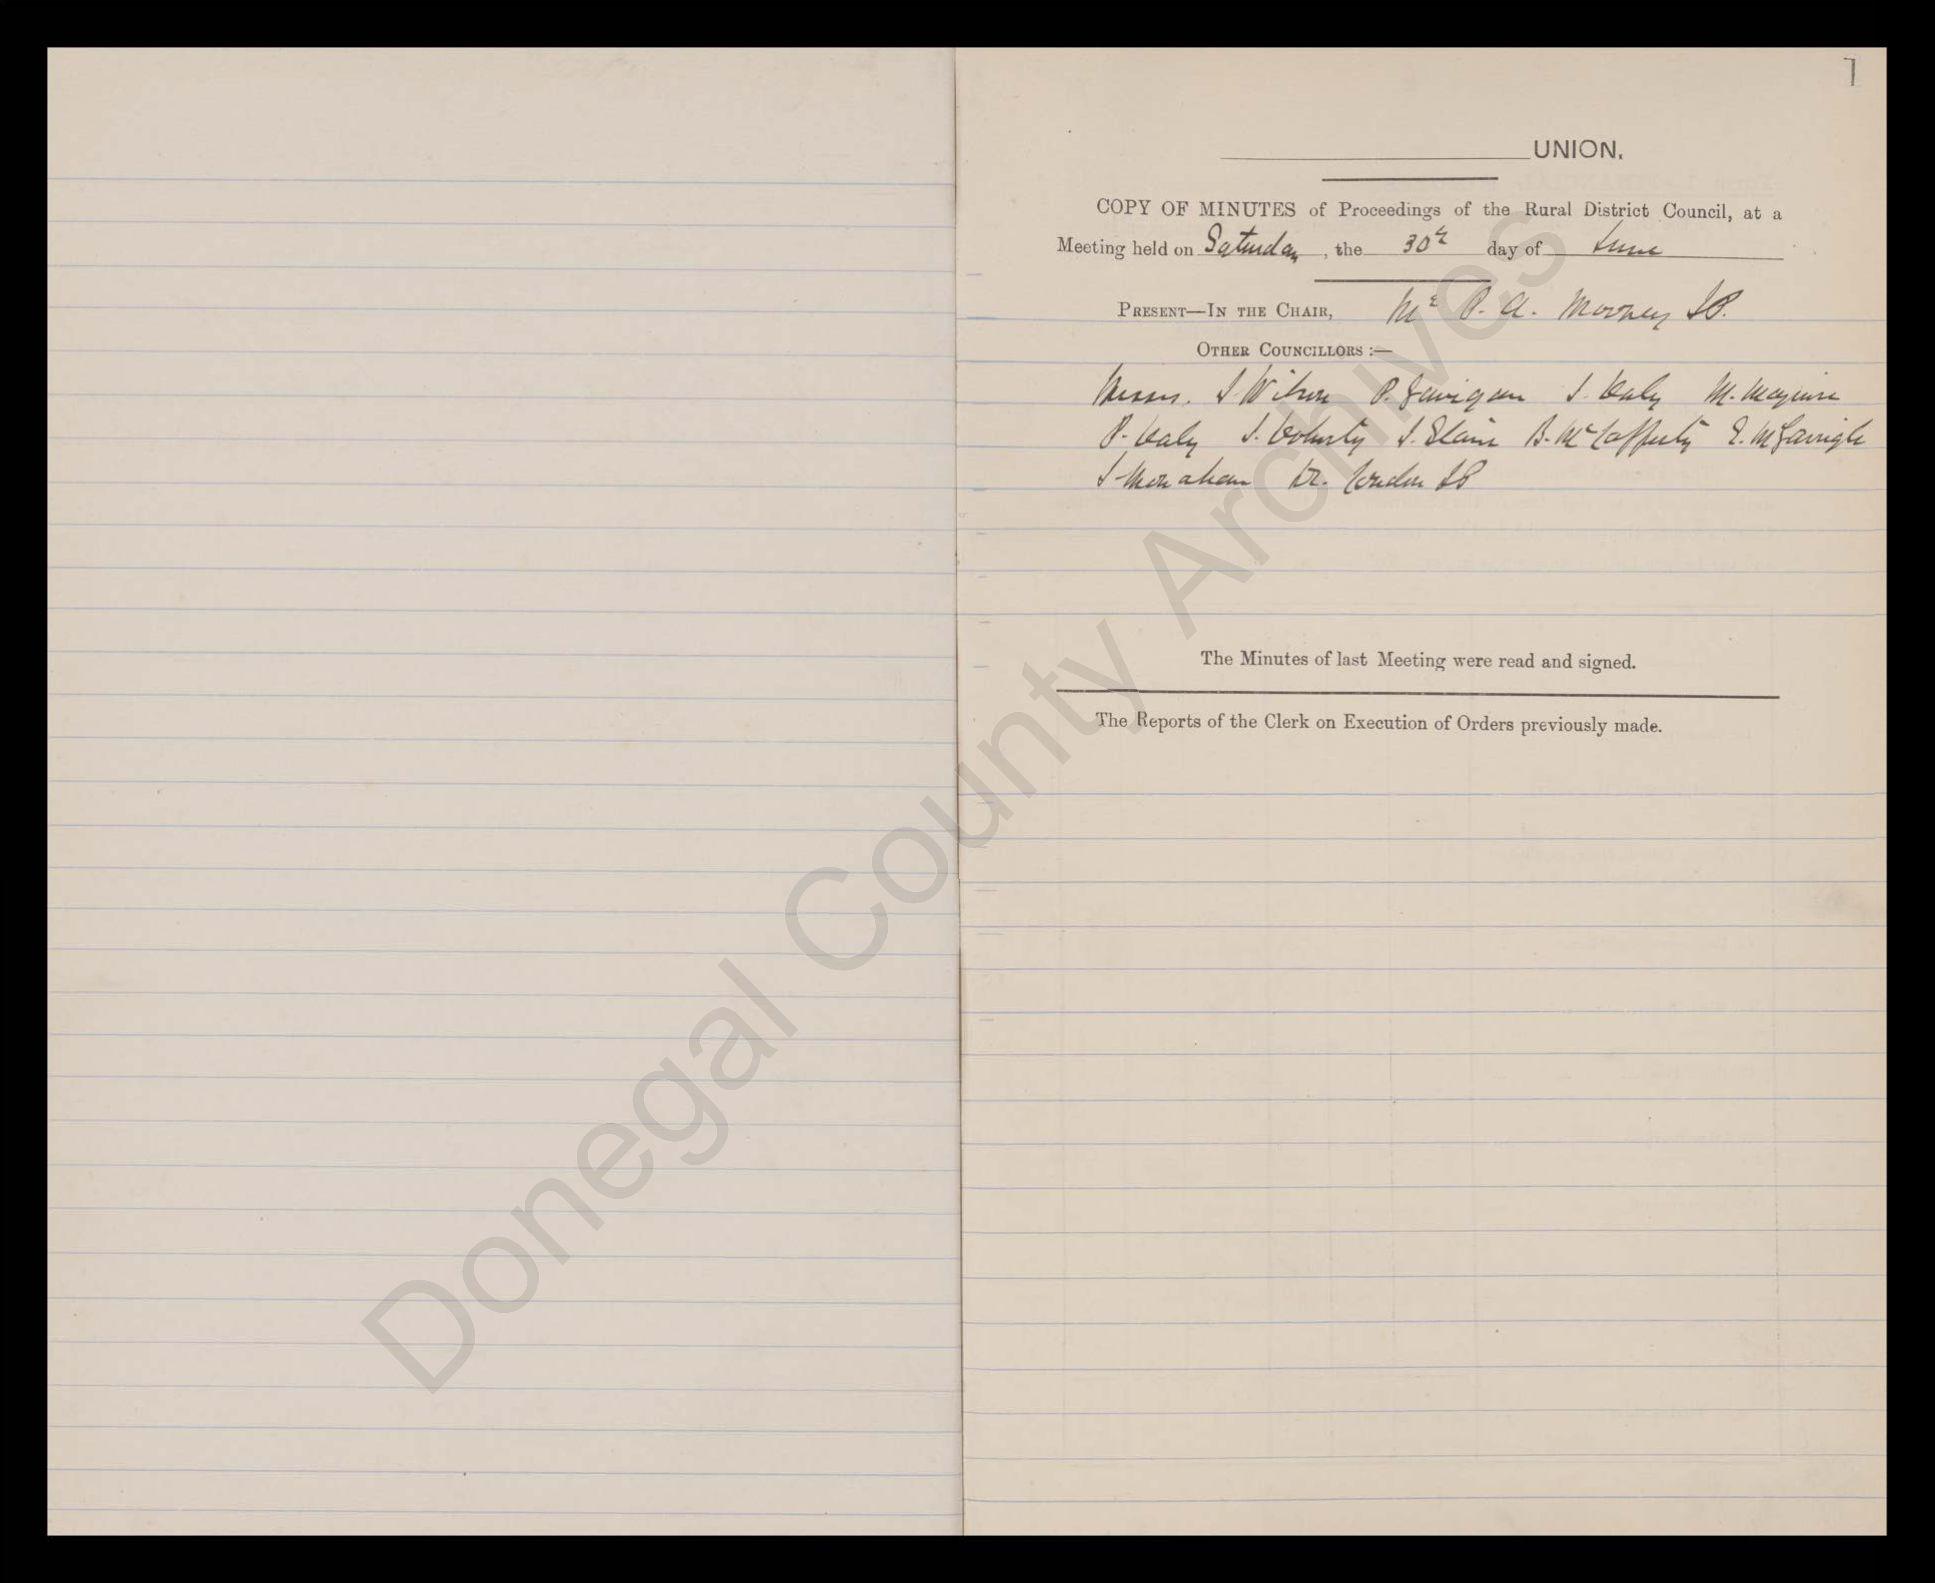 1
UNION.
COPY OF MINUTES of Proceedings of the Rural District Council, at a
Meeting held on Saturday, the 30th day of June
PRESENT—IN THE CHAIR, Mr P. A. Mooney J.P.
OTHER COUNCILLORS :—
Messrs. J Wilson P. Gavigan J. Daly M. Maguire
P. Daly J. Doherty J. Slavin B. McCafferty E. McGarrigle
J Monahan Dr. Gordon JP
The Minutes of last Meeting were read and signed.
The Reports of the Clerk on Execution of Orders previously made.
Donegal County Archives